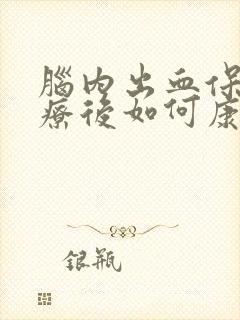 腦內出血保
療後如何康
銀瓶